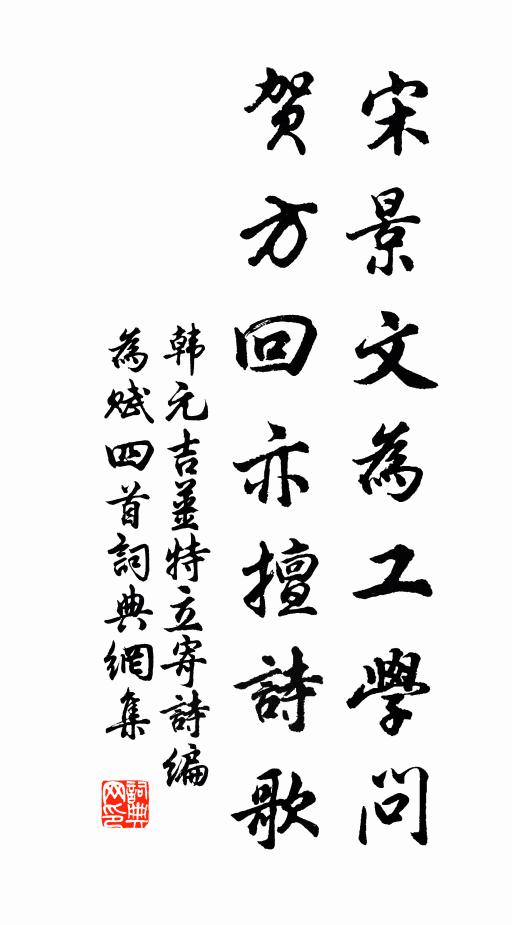 宋景文為工學問
贺方回亦擅詩歌
韩元吉薑特立寄詩编
為赋四首詞典網集
詞典网印